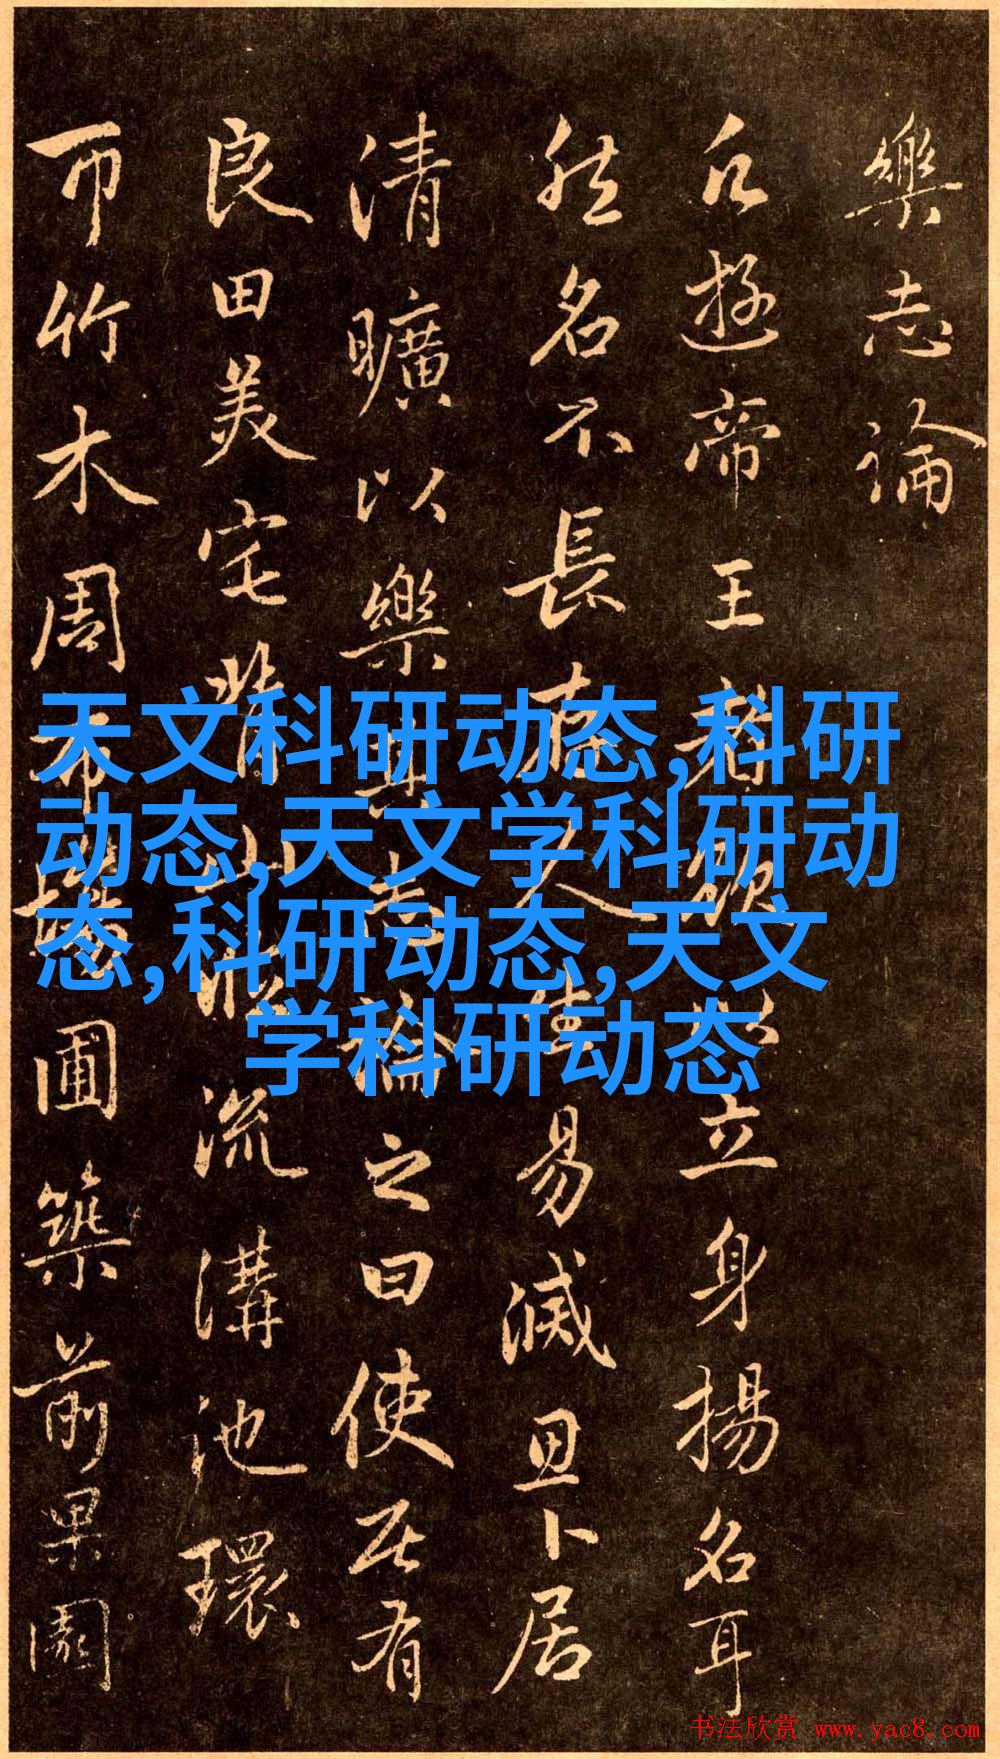 樂志論
凡遊帝王者欲以立身揚名耳
然名不長存人生易滅思卜居
清曠以樂其志論之曰使居有
良田美宅背山臨流溝池環
帀竹木周布場圃築前果園
天文科研动态,科研
动态,天文学科研动
态,科研动态,天文
学科研动态
书法欣赏 www.yac8.com